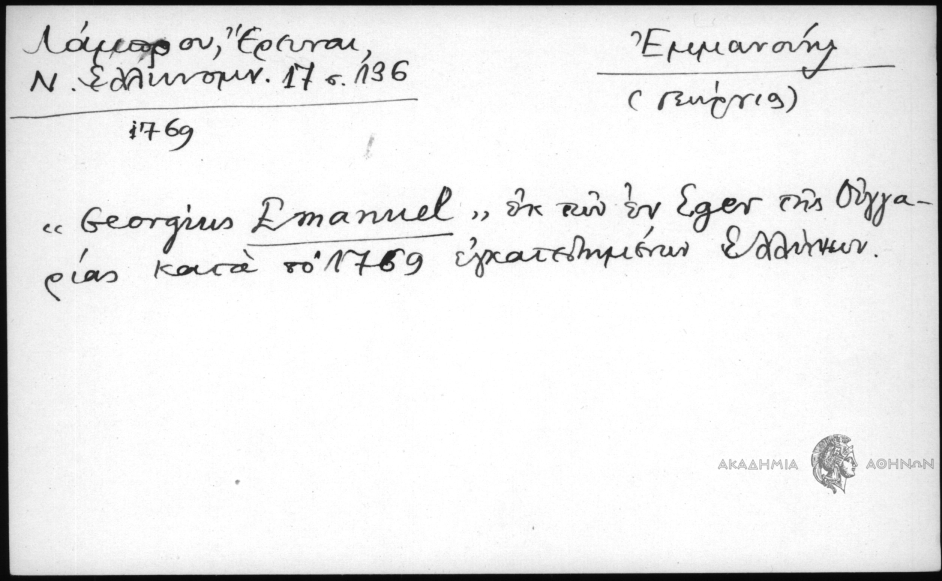 Λάμπρου, Ἔρευναι,
Ν. Ἑλληνομν. 17 σ. 136
1769
Ἐμμανουήλ
(Γεώργιος)
“Georgius Emanuel„ ἐκ τῶν ἐν Eger τῆς Οὑγγα-
ρίας κατὰ τὸ 1769 ἐγκατεστημένων Ἑλλήνων.
ΑΚΑΔΗΜΙΑ ΑΘΗΝΩΝ